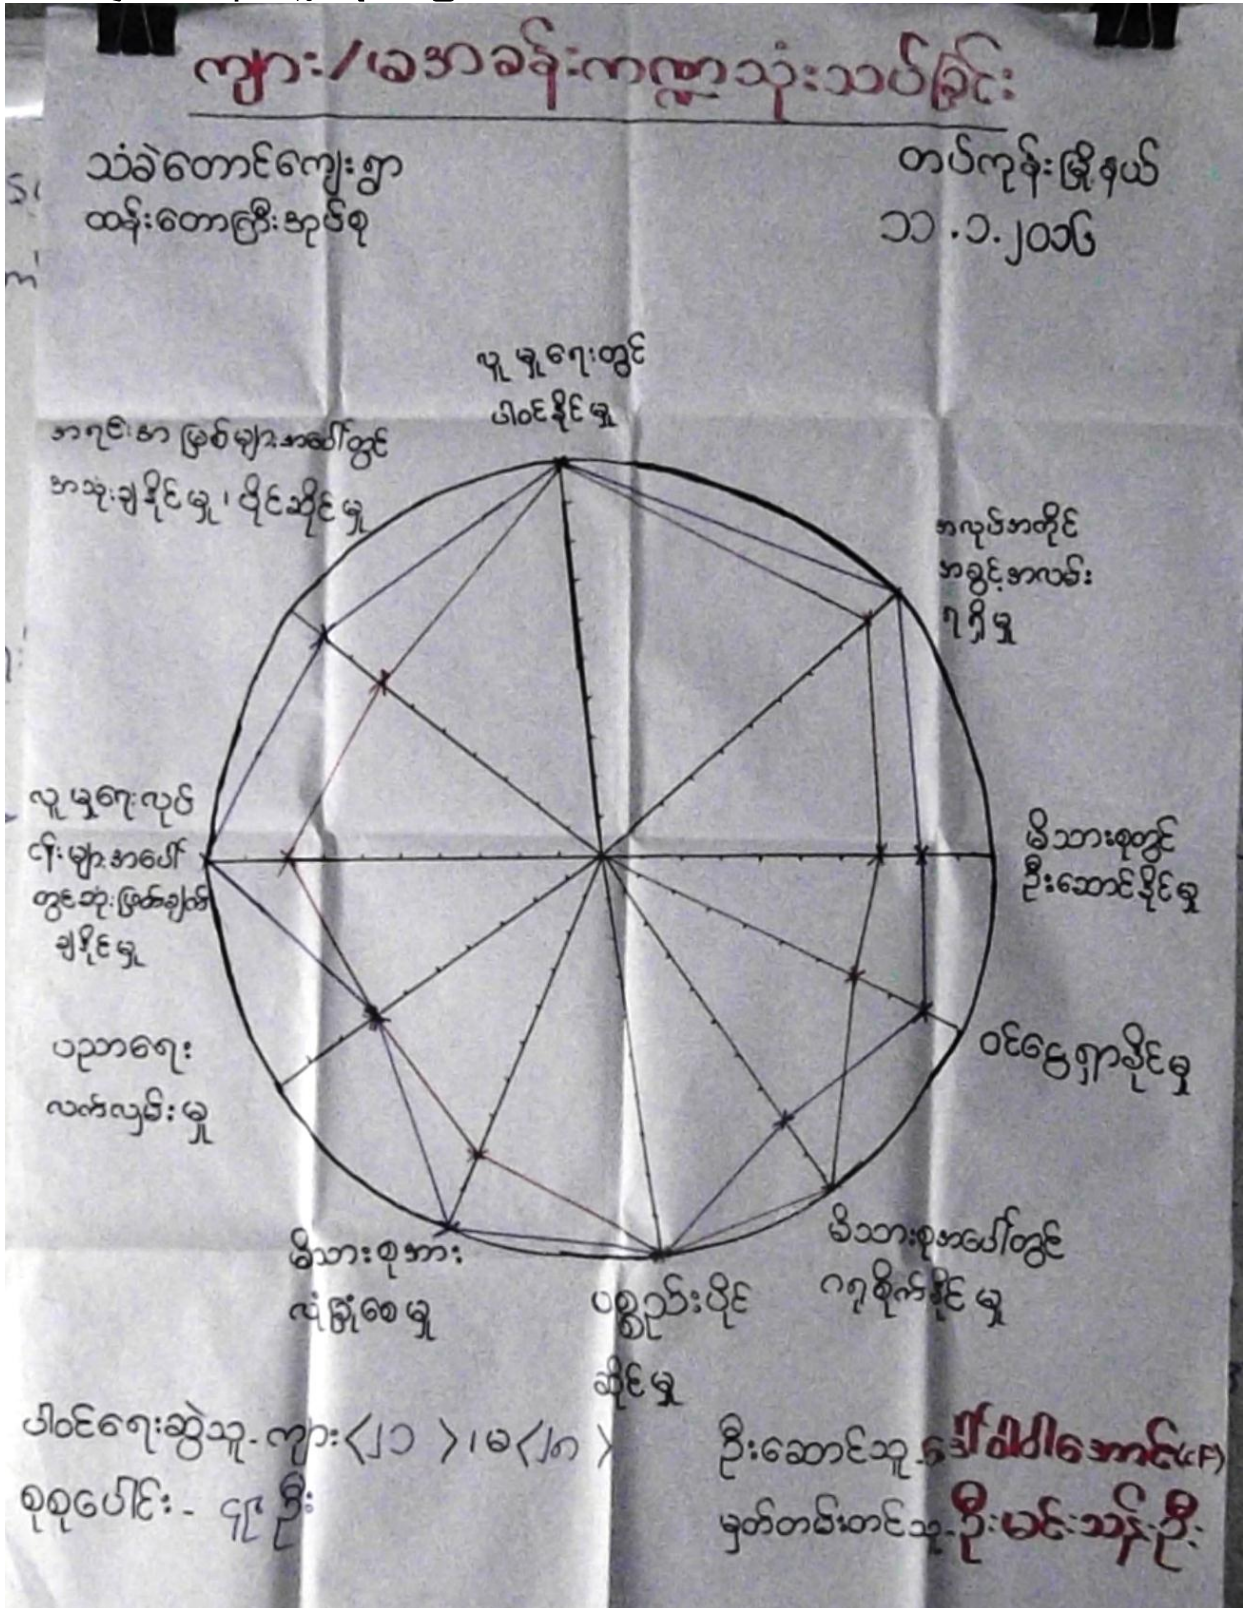 ကျား/မအခန်းကဏ္ဍသုံးသပ်ခြင်း
သံခဲတောင်ကျေးရွာ
ထန်းတောကြီးအုပ်စု
တပ်ကုန်းမြို့နယ်
၁၁.၁.၂၀၁၆
လူမှုရေးတွင်
ပါဝင်နိုင်မှု
အရင်းအမြစ်များအပေါ်တွင်
အသုံးချနိုင်မှု၊ ပိုင်ဆိုင်မှု
အလုပ်အကိုင်
အခွင့်အလမ်း
ရရှိမှု
လူမှုရေးလုပ်
ငန်းများအပေါ်
တွင်ဆုံးဖြတ်ချက်
ချနိုင်မှု
မိသားစုတွင်
ဦးဆောင်နိုင်မှု
ပညာရေး
လက်လှမ်းမှု
ဝင်ငွေရှာနိုင်မှု
မိသားစုအား
လုံခြုံစေမှု
ပစ္စည်းပိုင်
ဆိုင်မှု
မိသားစုအပေါ်တွင်
ဂရုစိုက်နိုင်မှု
ပါဝင်ရေးဆွဲသူ-ကျား<၂၁>၊မ<၂၈>
စုစုပေါင်း- ၄၉ဦး
ဦးဆောင်သူ-ဒေါ်ဝါဝါအောင်(CF)
မှတ်တမ်းတင်သူ-ဦးမင်းသန်းဦး